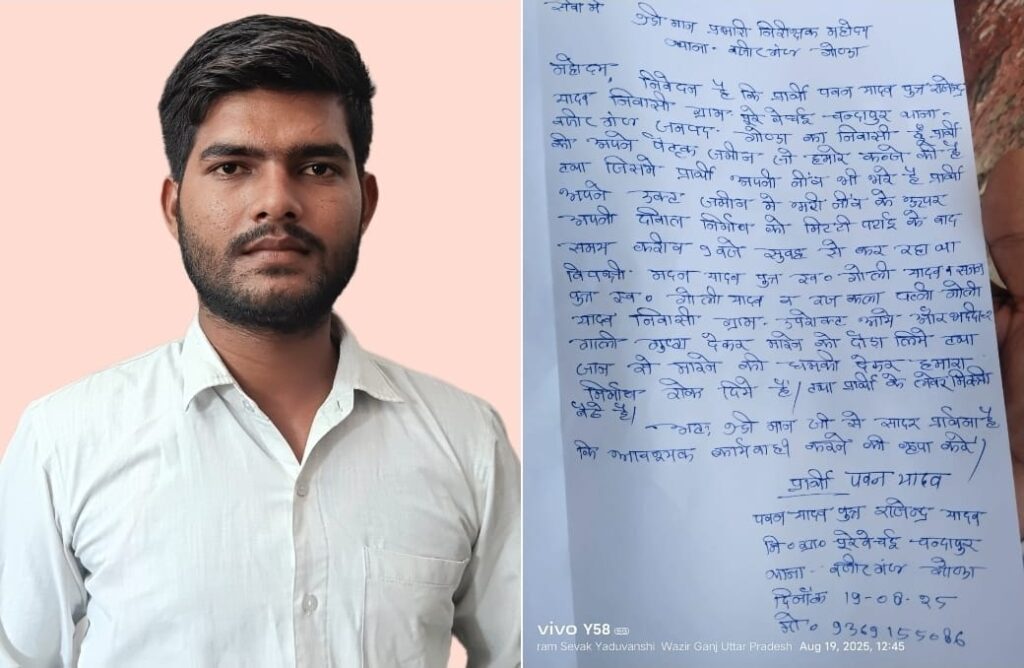 सेवा में
श्री मान प्रभारी निरीक्षक महोदय
थाना- वजीरगंज गोण्डा
महोदय,
निवेदन है कि प्रार्थी पवन यादव पुत्र राजेन्द्र
यादव निवासी ग्राम पूरे वेचई चन्दापुर थाना-
वजीरगंज जनपद- गोण्डा का निवासी हूँ प्रार्थी
को अपने पैतृक जमीन जो हमारे कब्जे की है
तथा जिसमे प्रार्थी अपनी नींव भी भरे है प्रार्थी
अपने उक्त जमीन मे भरी नींव के ऊपर
अपनी दीवाल निर्माण को मिट्टी पटाई के बाद
समय करीव 9 वजे सुवह से कर रहा था
विपक्षी मदन यादव पुत्र स्व० गोली यादव व
पुत्र स्व० गोली यादव व राज कला पत्नी गोली
यादव निवासी ग्राम- उपरोक्त आये और भद्दी-२
गाली गुप्ता देकर मारने को दौडा लिये तथा
जान से मारने की धमकी देकर हमारा
निर्माण रोक दिये है। तथा प्रार्थी के लेवर मिस्त्री
बैठे है।
अतः श्री मान जी से सादर प्रार्थना है
कि आवश्यक कार्यवाही करने की कृपा करे।
प्रार्थी पवन यादव
पवन यादव पुत्र राजेन्द्र यादव
नि०ग्रा० पूरे वेचई चन्दापुर
थाना- वजीरगंज गोण्डा
दिनाँक 19-08-25
मो० 9369155086
vivo Y58 5G
ram Sevak Yaduvanshi Wazir Ganj Uttar Pradesh Aug 19, 2025, 12:45